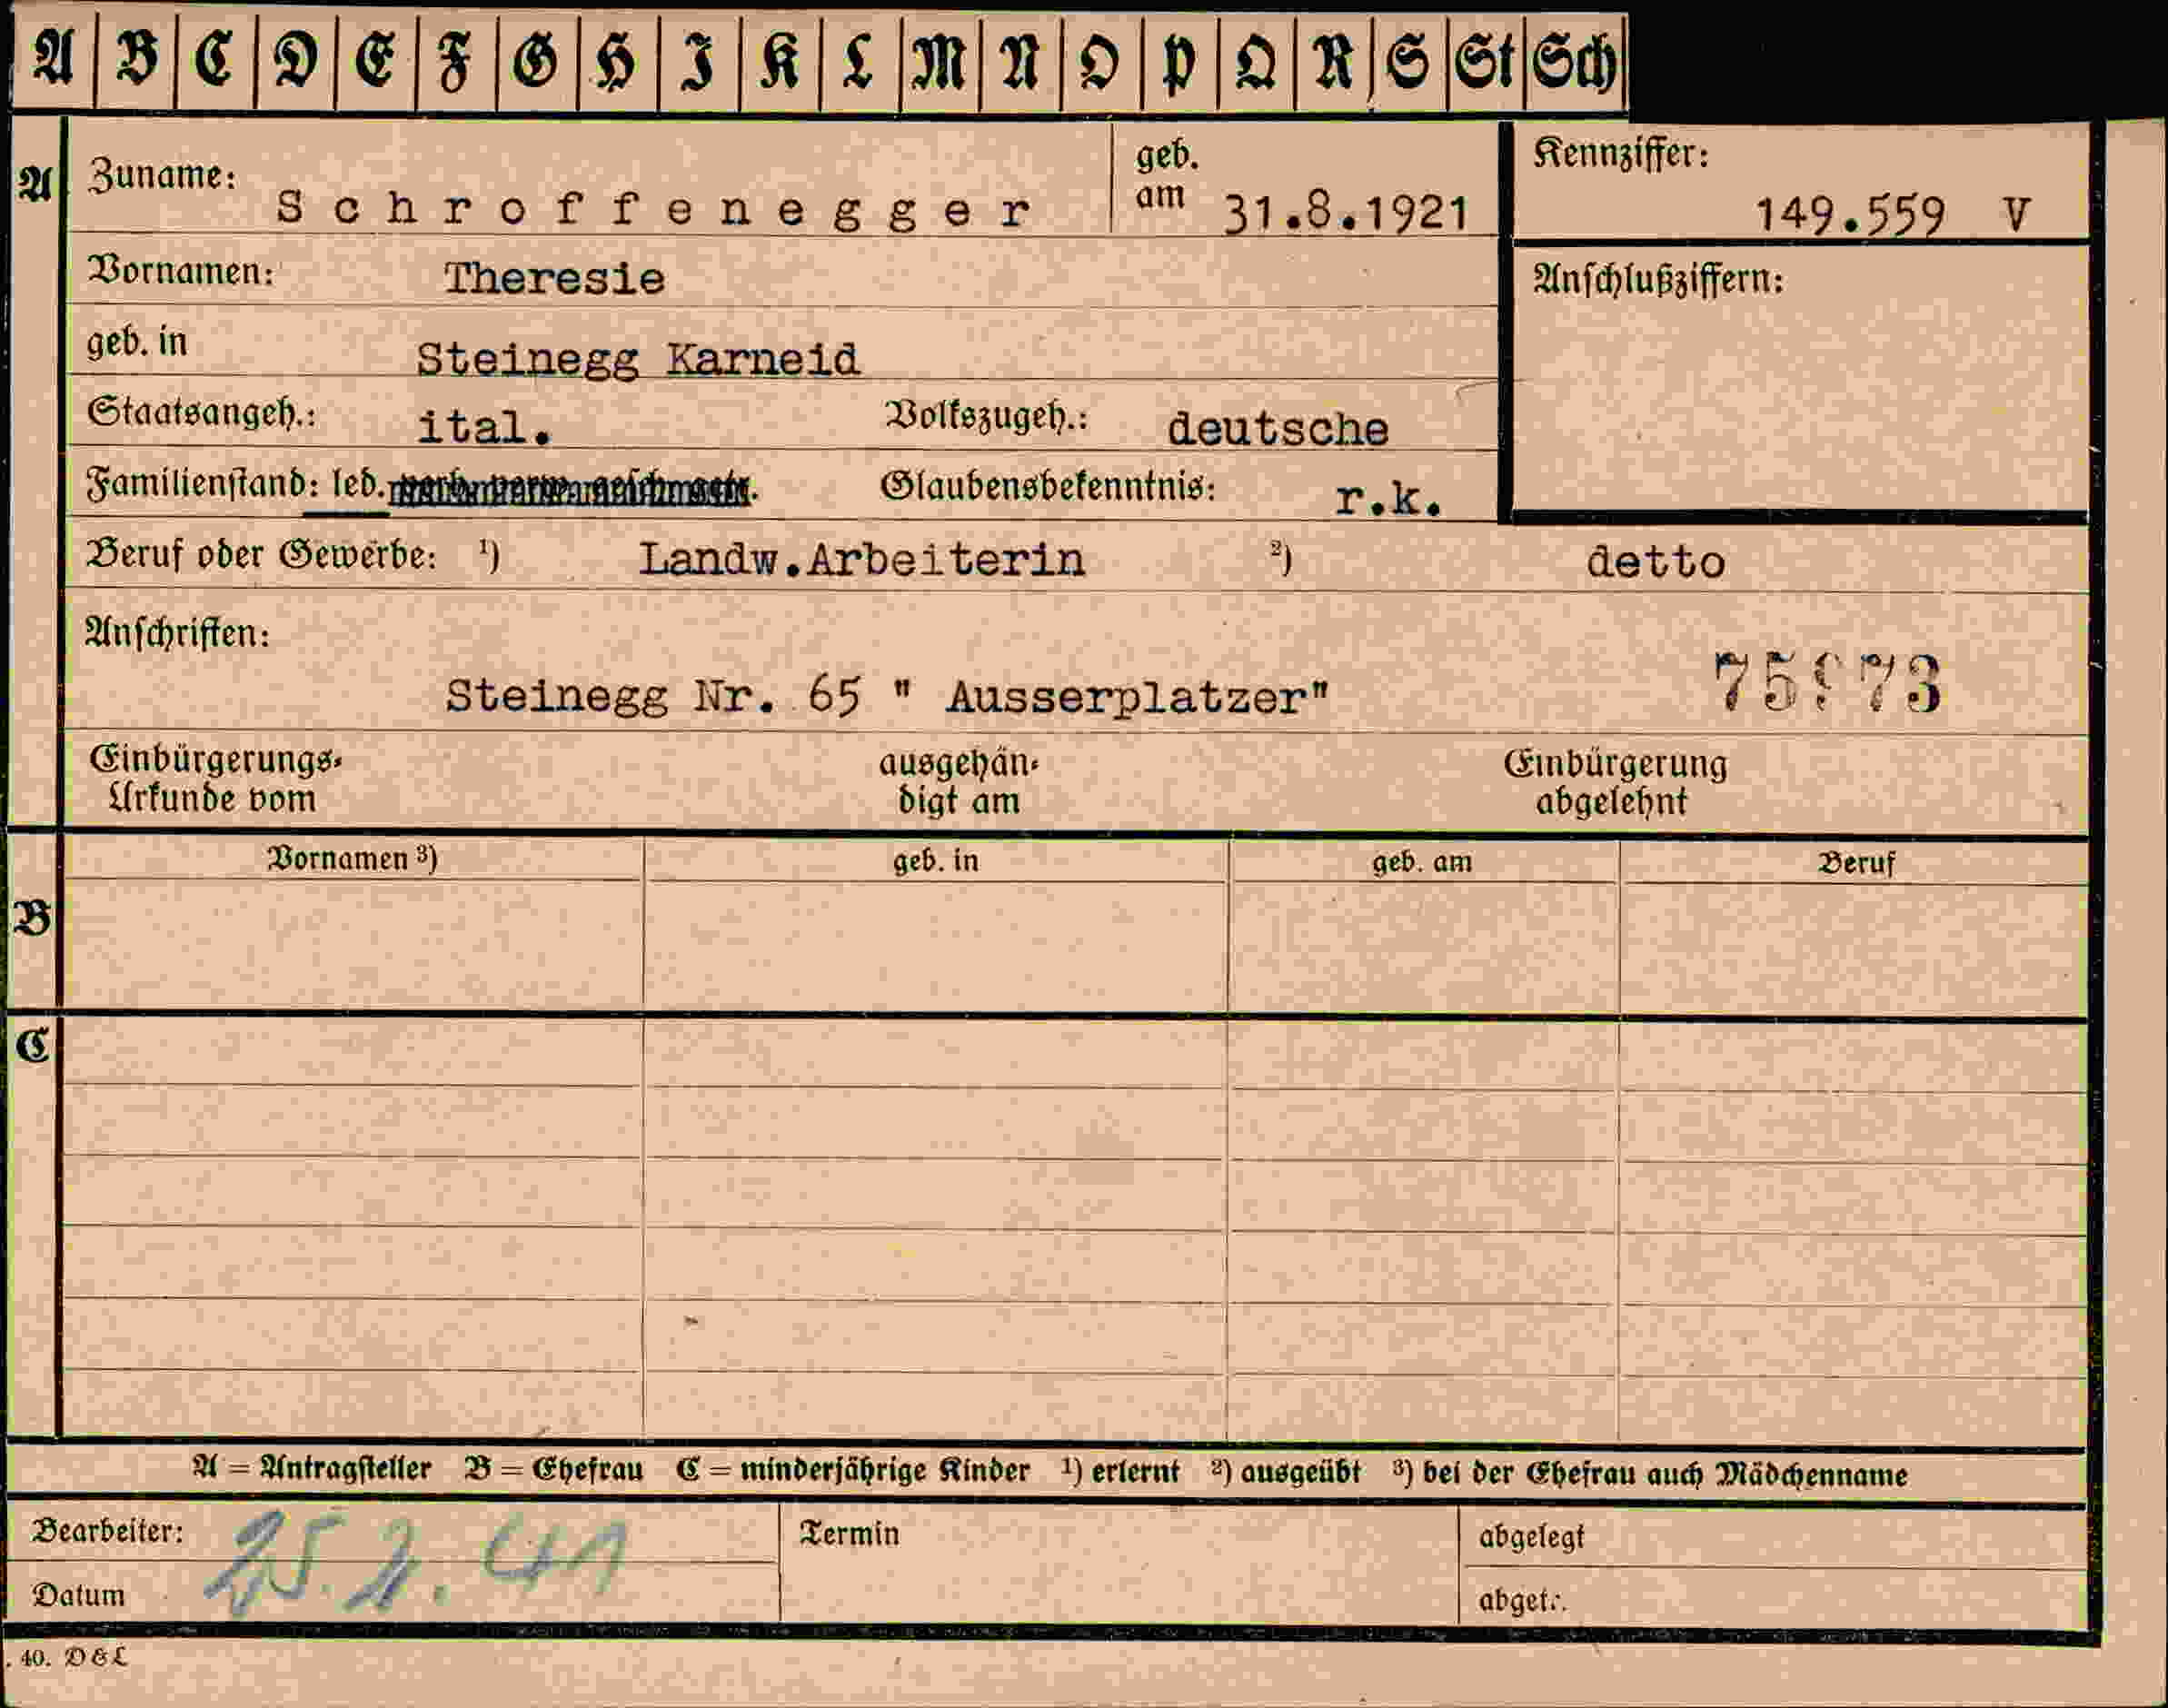 A B C D E F G H I K L M N O P Q R S St Sch
A Zuname: Schroffenegger geb. am 31.8.1921 Kennziffer: 149.559 V
Vornamen: Theresie Anschlußziffern:
geb. in Steinegg Karneid
Staatsangeh.: ital. Volkszugeh.: deutsche
Familienstand: led. Glaubensbekenntnis: r.k.
Beruf oder Gewerbe: ¹) Landw.Arbeiterin ²) detto
Anschriften:
Steinegg Nr. 65 " Ausserplatzer"
Einbürgerungs- ausgehän- Einbürgerung
Urkunde vom digt am abgelehnt
Vornamen ³) geb. in geb. am Beruf
B
C
A = Antragsteller B = Ehefrau C = minderjährige Kinder ¹) erlernt ²) ausgeübt ³) bei der Ehefrau auch Mädchenname
Bearbeiter: Termin abgelegt
Datum 25.2.41 abgetr.
. 40. D & L